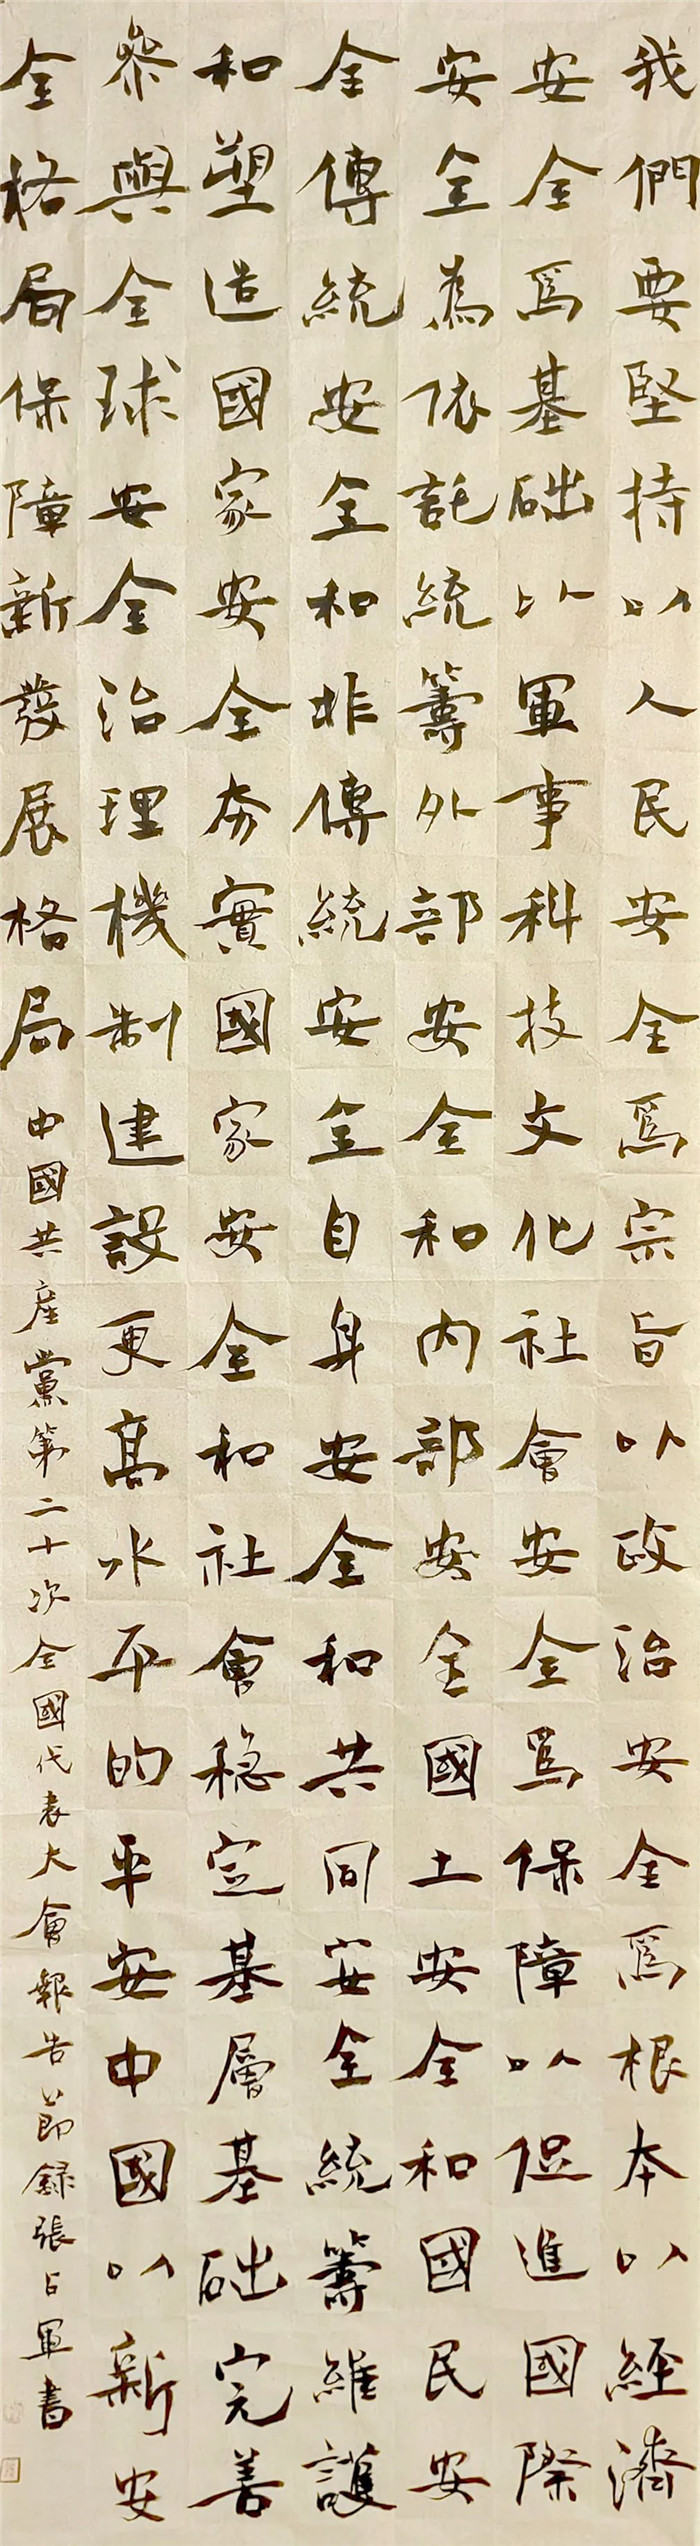 我們要堅持以人民安全爲宗旨以政治安全爲根本以經濟
安全爲基础以軍事科技文化社會安全爲保障以促進國際
安全為依託統籌外部安全和内部安全國土安全和國民安
全傳統安全和非傳統安全自身安全和共同安全統籌維護
和塑造國家安全夯實國家安全和社會稳定基層基础完善
參與全球安全治理機制建設更高水平的平安中國以新安
全格局保障新發展格局
中國共産黨第二十次全國代表大會報告節録張占軍書